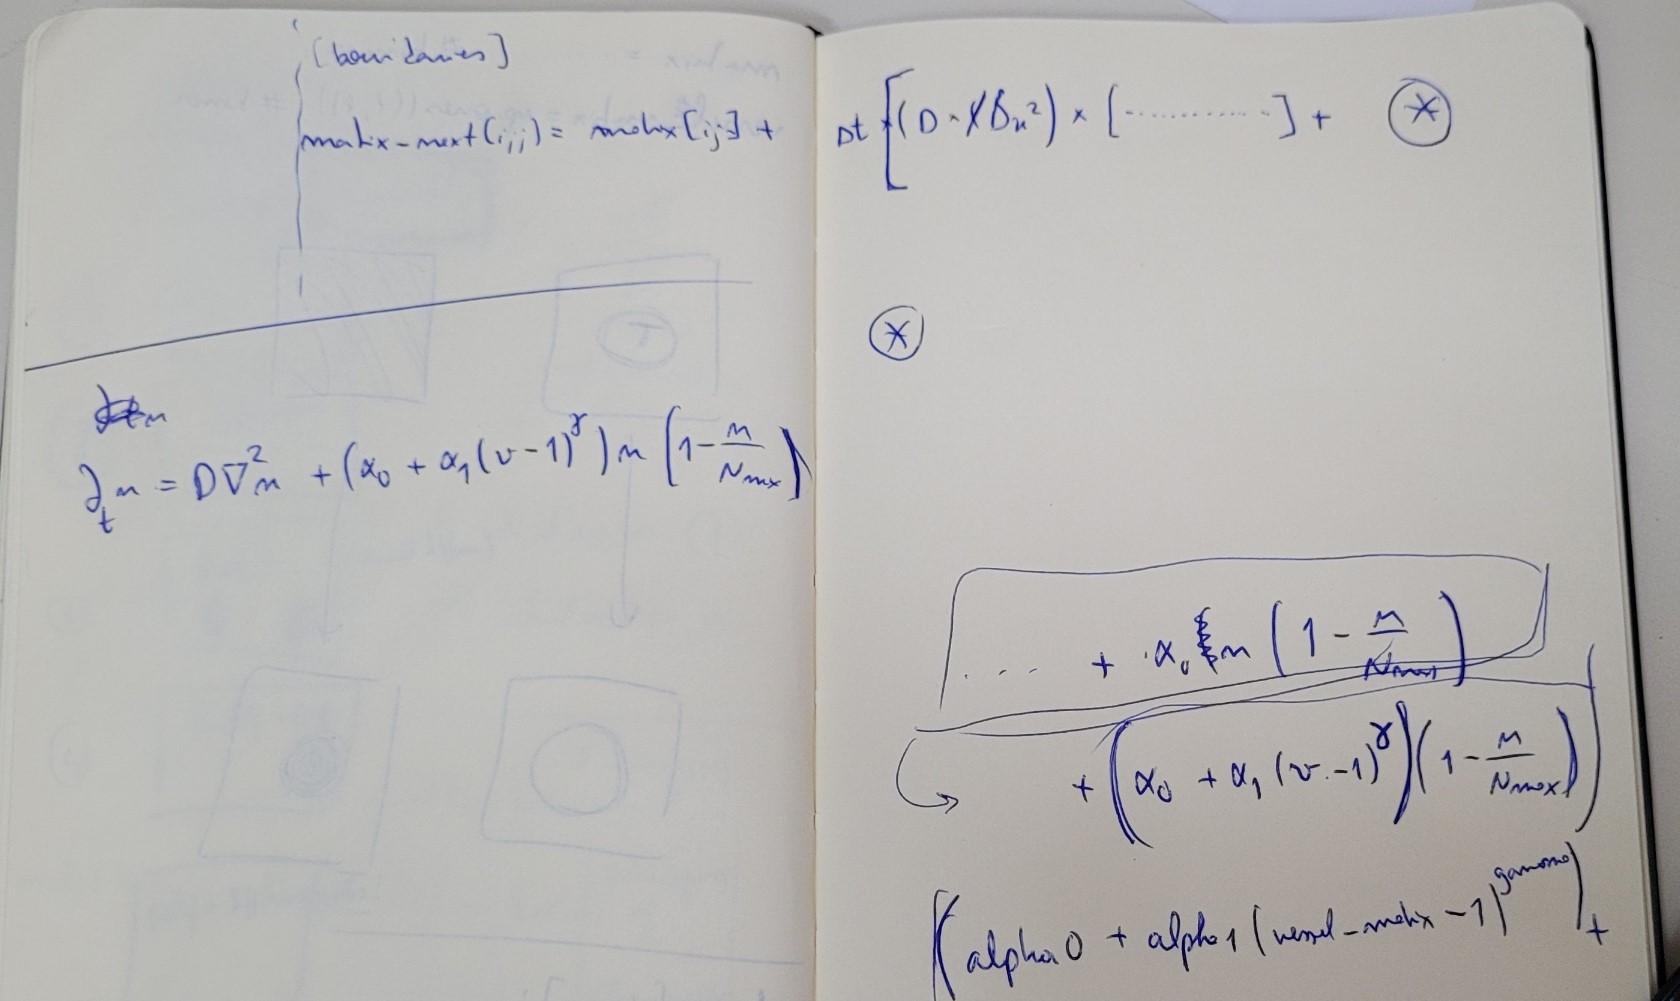 [boundaries]
matrix-next(i,j) = matrix[ij] +
∂ₜn = D∇²n + (α₀ + α₁(v-1)^γ) n (1 - n/Nmax)
Dt [(D · 1/Dx²) × [............] + (*)
(*)
.... + α₀ n (1 - n/Nmax)
+ (α₀ + α₁(v-1)^γ)(1 - n/Nmax)
((alpha0 + alpha1(vessel-matrix -1)^gamma) +